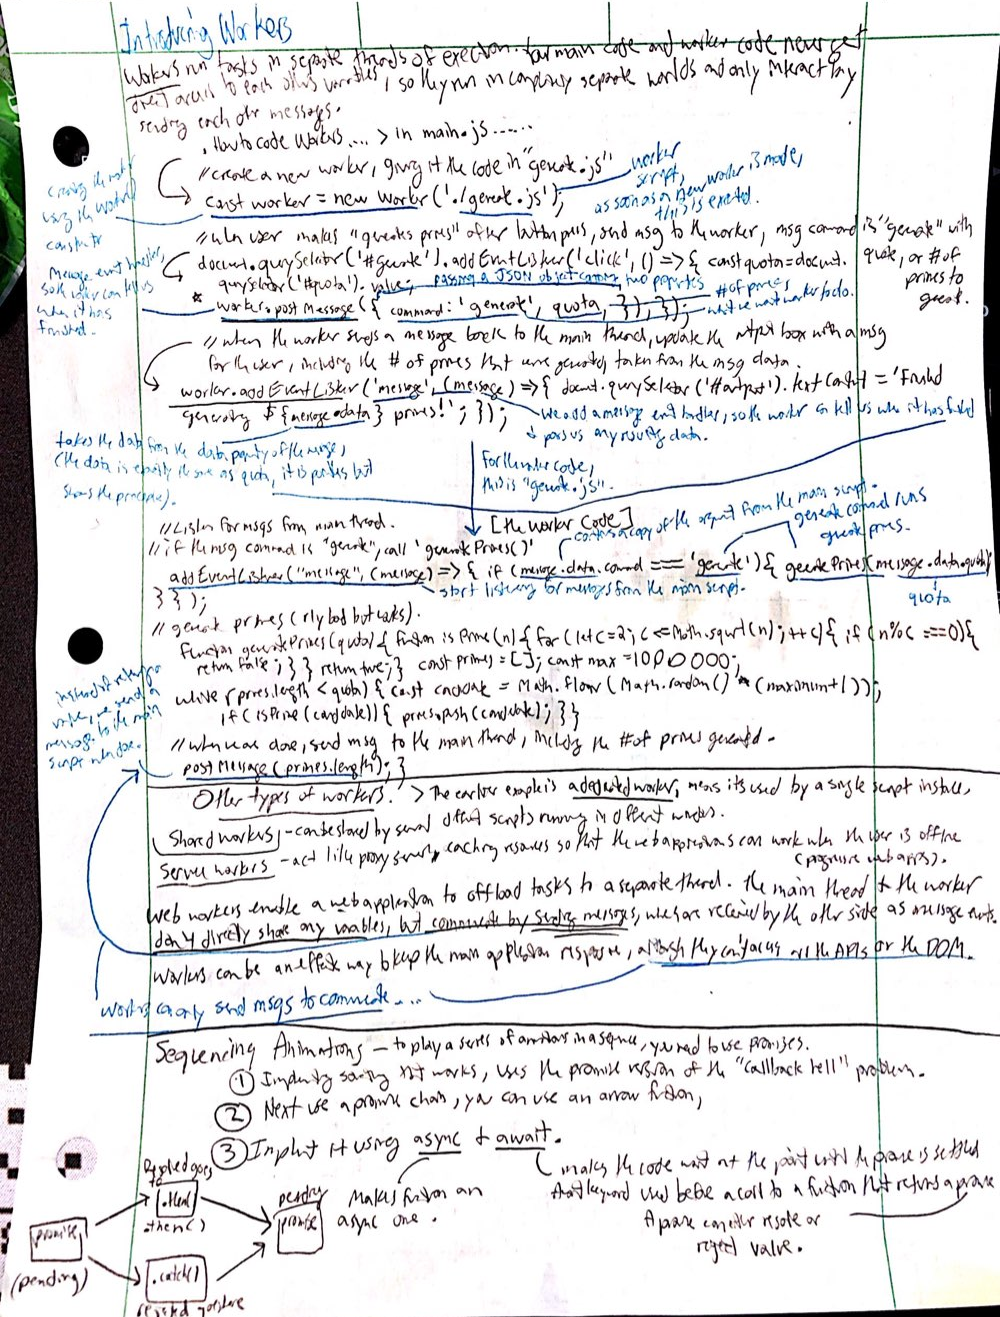 Introducing Workers
Workers run tasks in separate threads of execution. Your main code and worker code never get
direct access to each others variables, so they run in completely separate worlds and only interact by
sending each other messages.
. How to code Workers.... > in main.js ......
//create a new worker, giving it the code in "generate.js"
const worker = new Worker('./generate.js');
worker
script,
as soon as a new worker is made,
this is executed.
using the Worker
//when user makes "generate primes" after button press, send msg to the worker, msg command is "generate" with
quota, or # of
primes to
generate.
document.querySelector('#generate').addEventListener('click', () => { const quota = document.
querySelector('#quota').value;
passing a JSON object two properties
* worker.postMessage({ command: 'generate', quota, }); });
# of primes
Message event handler,
so the worker can tell us
when it has
finished.
//when the worker sends a message back to the main thread, update the output box with a msg
for the user, including the # of primes that were generated taken from the msg data.
worker.addEventListener('message', (message) => { document.querySelector('#output').textContent = 'Finished
generating ${message.data} primes!'; });
We add a message event handler, so the worker can tell us when it has finished
& pass us any resulting data.
takes the data from the data property of the message,
(the data is the same as quota, it is but
shows the principle).
For the worker code,
this is "generate.js".
[the worker code]
//Listen for msgs from main thread.
//if the msg command is "generate", call 'generatePrimes()'
contains a copy of the from the main script.
generate command runs
generate primes.
addEventListener("message", (message) => { if (message.data.command === 'generate') { generatePrimes(message.data.quota)
start listening for messages from the main script.
quota
} });
// generate primes (rly bad but works).
function generatePrimes(quota) { function isPrime(n) { for (let c=2; c <= Math.sqrt(n); ++c) { if (n%c === 0) {
return false; } } return true; } const primes = []; const max = 1000000;
while (primes.length < quota) { const candidate = Math.floor(Math.random() * (maximum+1));
if (isPrime(candidate)) { primes.push(candidate); } }
instead of returning a
value, we send a
message to the main
script when done.
//when we done, send msg to the main thread, including the # of primes generated.
postMessage(primes.length); }
Other types of workers. > The earlier example is a dedicated worker, means its used by a single script instance,
Shared workers - can be shared by several different scripts running in different windows.
Service workers - act like proxy servers, caching resources so that the web applications can work when the user is offline
(progressive web apps).
Web workers enable a web application to offload tasks to a separate thread. the main thread & the worker
don't directly share any variables, but communicate by sending messages, which are received by the other side as message events.
Workers can be an effective way to keep the main application responsive, although they can't access all the APIs or the DOM.
workers can only send msgs to communicate....
Sequencing Animations – to play a series of animations in a sequence, you need to use promises.
① Implement something that works, uses the promise version of the "callback hell" problem.
② Next use a promise chain, you can use an arrow function,
③ Implement it using async & await.
makes the code wait at the point until the promise is settled
await keyword used before a call to a function that returns a promise
A promise can either resolve or
reject value.
Makes function an
async one.
promise
(pending)
.then()
.then()
.catch()
pending
promise